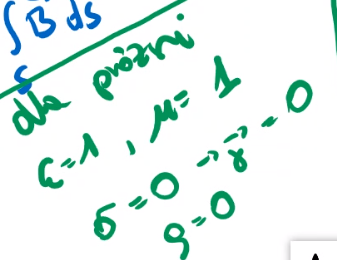 ∫ B ds
S
dla próżni
ε=1, μ=1
σ=0 → γ⃗=0
ρ=0